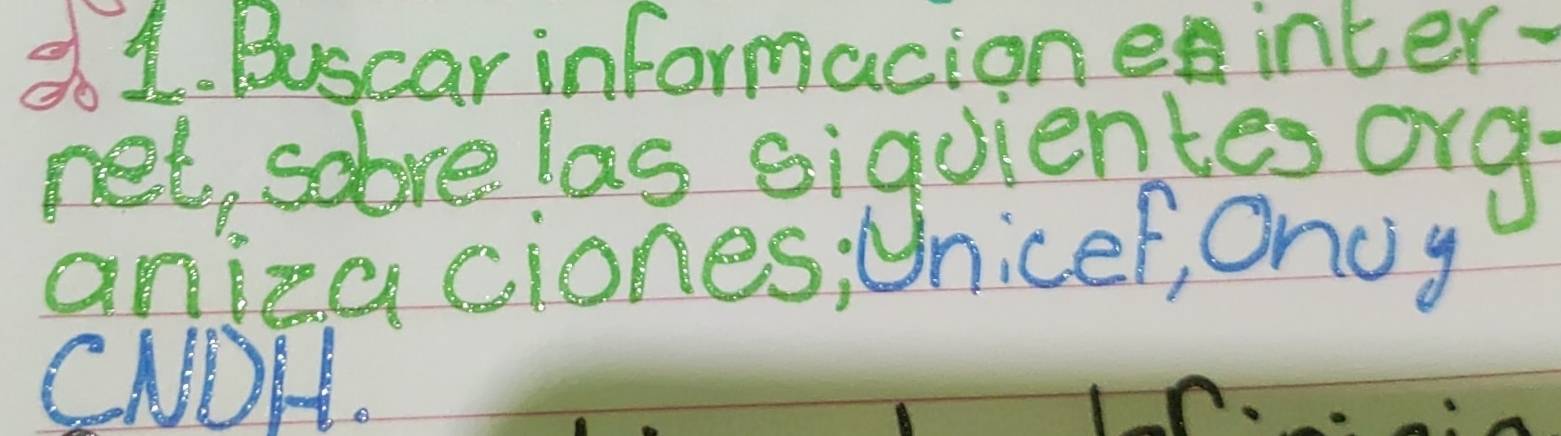 1. Buscar informacion en inter-
net, sobre las siguientes org-
aniza ciones; Unicef, Onu y
CNDH.